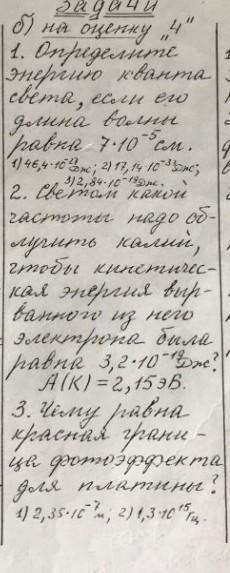 Задачи
б) на оценку „4"
1. Определите
энергию кванта
света, если его
длина волны
равна 7·10⁻⁵ см.
1) 46,4·10²³ Дж; 2) 17,14·10⁻³³ Дж;
3) 2,84·10⁻¹⁹ Дж.
2. Светом какой
частоты надо об-
лучить калий,
чтобы кинетичес-
кая энергия выр-
ванного из него
электрона была
равна 3,2·10⁻¹⁹ Дж?
А(К) = 2,15 эВ.
3. Чему равна
красная грани-
ца фотоэффекта
для платины?
1) 2,35·10⁻⁷ м; 2) 1,3·10¹⁵ Гц.